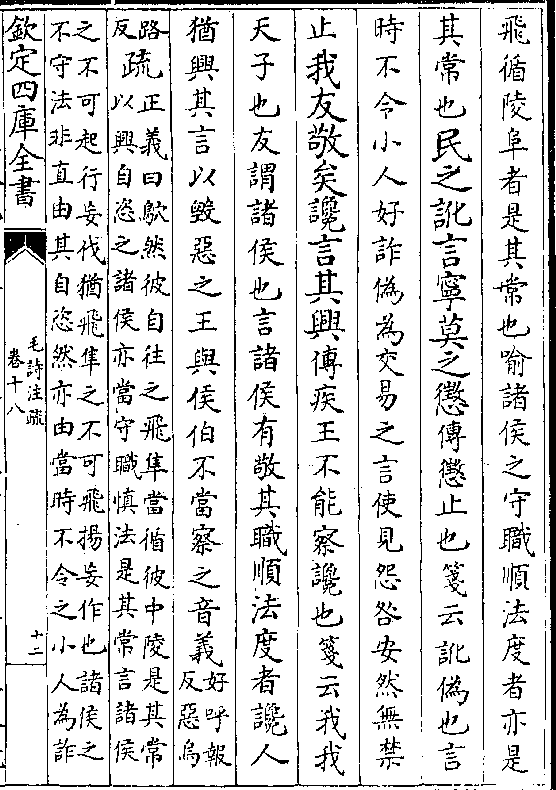 飛循陵阜者是其常也喻諸侯之守職順法度者亦是
其常也民之訛言寧莫之懲傳懲止也箋云訛偽也言
時不令小人好詐偽為交易之言使見怨咎安然無禁
止我友敬矣讒言其興傳疾王不能察讒也箋云我我
天子也友謂諸侯也言諸侯有敬其職順法度者讒人
猶興其言以毀惡之王與侯伯不當察之音義好呼報
反惡烏
路
反疏正義曰鴥然彼自往之飛隼當循彼中陵是其常
以興自恣之諸侯亦當守職慎法是其常言諸侯
之不可起行妄伐猶飛隼之不可飛揚妄作也諸侯之
不守法非直由其自恣然亦由當時不令之小人為詐
欽定四庫全書
毛詩注疏
卷十八
十二